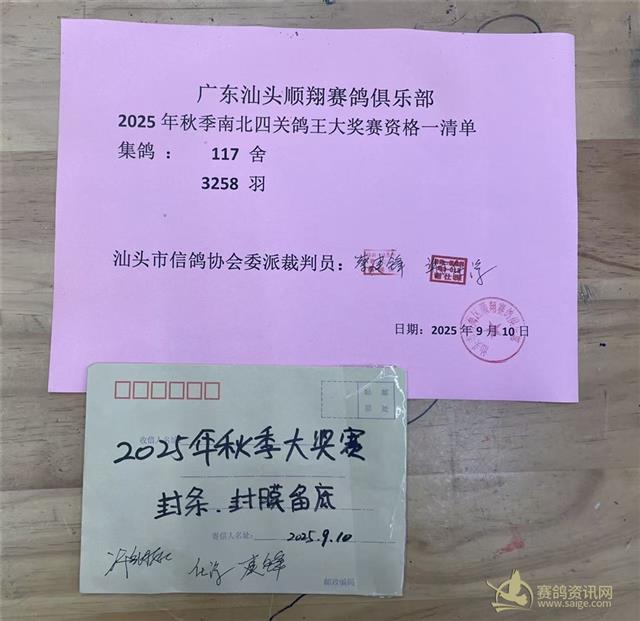 广东汕头顺翔赛鸽俱乐部
2025 年秋季南北四关鸽王大奖赛资格一清单
集鸽： 117 舍
3258 羽
汕头市信鸽协会委派裁判员：
日期：2025 年 9 月 10 日
贴 邮
票 处
收信人名址
2025年秋季大奖赛
封条.封膜留底
寄信人名址:
2025.9.10
邮政编码
赛鸽资讯网
www.saige.com